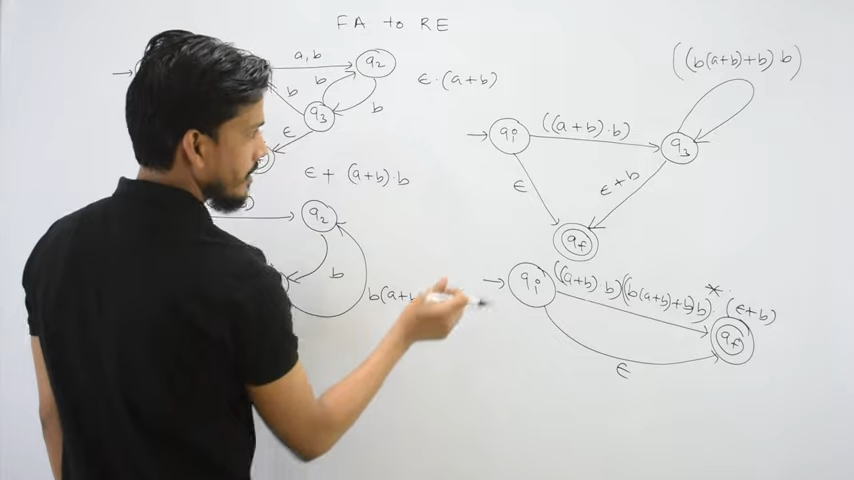 FA to RE
a, b
q₂
b
b
b
q₃
ϵ
ϵ·(a+b)
ϵ + (a+b)·b
q₂
b
b(a+b
((b(a+b)+b) b)
qi
((a+b)·b)
q₃
ϵ
ϵ+b
qf
qi
((a+b) b)((b(a+b)+b)b)* · (ϵ+b)
qf
ϵ